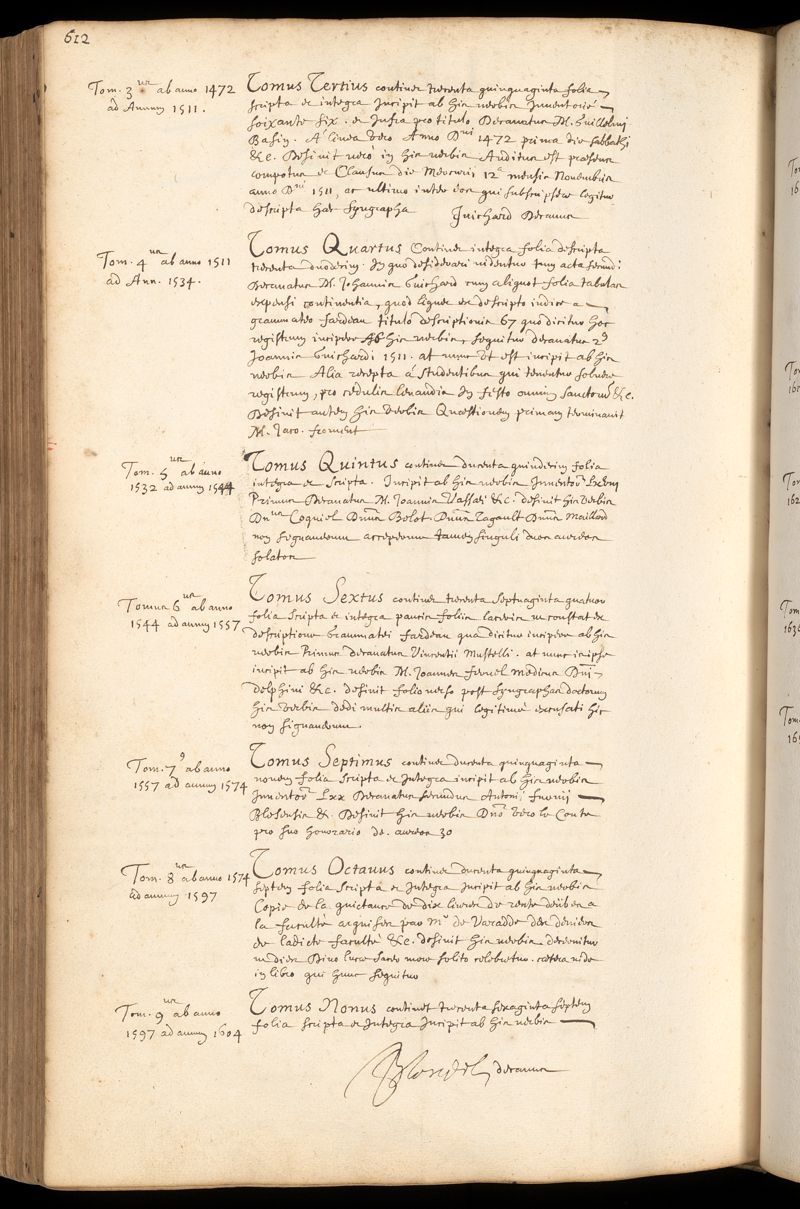 612
Tom. 3us ab anno 1472
ad Annum 1511.
Tomus Tertius continet trecenta quinquaginta folia
scripta et integra Incipit ab his verbis Inventorié
soixante six. et infra pro titulo Decanatus M. Guillelmi
Basin. A linea vero Anno Dni 1472 prima die sabbathi
&c. Desinit vero in his verbis Auditus est praesens
computus et Clausus die Mercurij 12a mensis Novembris
anno Dni 1511, ac ultimo inter eos qui subscripsere legitur
descripta haec syngrapha Guichard Decanus
Tom. 4us ab anno 1511
ad Ann. 1534.
Tomus Quartus Continet integra folia descripta
trecenta duodecim. In quo desiderari videntur tum acta secundi
Decanatus M. Johannis Guichard cum aliquot folia tabulas
expensi continentia, quod liquet ex descripto indice a
grammateo fardeau titulo descriptionis 67 quo dicitur hoc
registrum incipere Ab his verbis, sequitur decanatus 2us
Joannis Guichardi 1511. at nunc ut est incipit ab his
verbis Alia recepta a studentibus qui tenentur solvere
registrum, pro cedulis levandis In festo omnium sanctorum &c.
Desinit autem his verbis Quaestionem primam terminavit
M. Jaco. froment
Tom. 5us ab anno
1532 ad annum 1544
Tomus Quintus continet ducenta quindecim folia
integra et scripta. Incipit ab his verbis Inventor
Primus Decanatus M. Joannis Vassaei &c. desinit his verbis
Dnus Coquiel Dnus Belot Dnus Tagault Dnus Maillard
non signaverunt acceperunt tamen singuli duos aureos
solatos
Tomus 6us ab anno
1544 ad annum 1557
Tomus Sextus continet trecenta septuaginta quatuor
folia scripta et integra paucis foliis laceris ut constat ex
descriptione Grammatei fardeau qua dicitur incipere ab his
verbis Primus decanatus Vincentii Mustelli. at nunc in ipse
incipit ab his verbis M. Joannes fernel medicus Dni
delphini &c. desinit folio verso post syngraphas doctorum
his verbis dedi multis aliis qui legitimé excusati hic
non signaverunt.
Tom. 7us ab anno
1557 ad annum 1574
Tomus Septimus continet ducenta quinquaginta
novem folia scripta et Integra incipit ab his verbis
Inventor Lxx Decanatus secundus Antonii
Blesensis &. Desinit his verbis Dno vero le Conte
pro suo honorario de. aureos 30
Tom. 8us ab anno 1574
ad annum 1597
Tomus Octauus continet ducenta quinquaginta
septem folia scripta et Integra Incipit ab his verbis
Copie de la quictance de dix livres de rente deubes a
la faculté acquises par Mr de Varadde des deniers
de ladicte faculté &c. desinit his verbis decernitur
ut dies Divo lucae sacer more solito celebretur. caetera vide
in libro qui hunc sequitur
Tom. 9us ab anno
1597 ad annum 1604
Tomus Nonus continet trecenta sexaginta septem
folia scripta et Integra Incipit ab his verbis
Blondel decanus